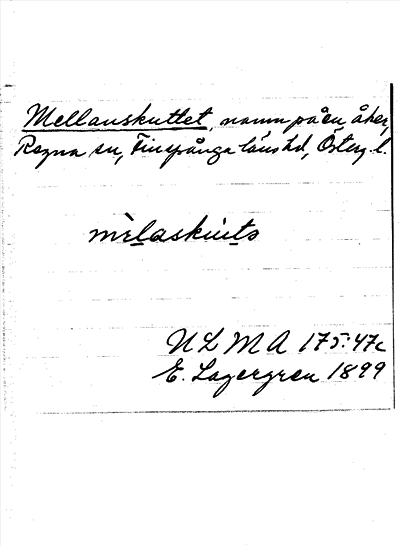 Mellanskuttet, namn på en åker,
Regna sn, Finspånga läns hd, Österg. l.
mèlaskùts
ULMA 175:47c
E. Lagergren 1899